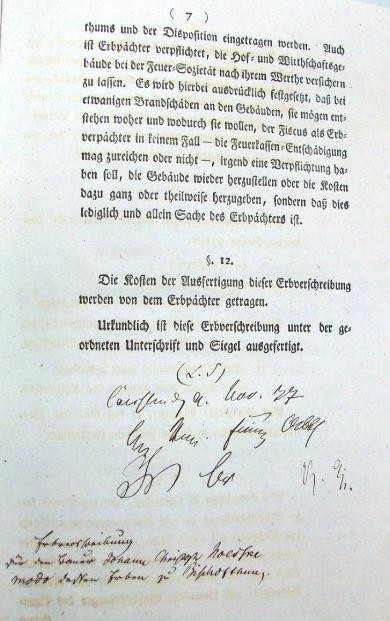 ( 7 )
thums und der Disposition eingetragen werden. Auch
ist Erbpächter verpflichtet, die Hof- und Wirthschaftsge-
bäude bei der Feuer-Sozietät nach ihrem Werthe versichern
zu lassen. Es wird hierbei ausdrücklich festgesetzt, daß bei
etwanigen Brandschäden an den Gebäuden, sie mögen ent-
stehen woher und wodurch sie wollen, der Fiscus als Erb-
verpächter in keinem Fall — die Feuerkassen-Entschädigung
mag zureichen oder nicht —, irgend eine Verpflichtung ha-
ben soll, die Gebäude wieder herzustellen oder die Kosten
dazu ganz oder theilweise herzugeben, sondern daß dies
lediglich und allein Sache des Erbpächters ist.
§. 12.
Die Kosten der Ausfertigung dieser Erbverschreibung
werden von dem Erbpächter getragen.
Urkundlich ist diese Erbverschreibung unter der ge-
ordneten Unterschrift und Siegel ausgefertigt.
(L. S)
Nov. 27
Erbverschreibung
für den Bauer Johann Christoph
modo dessen Erben zu